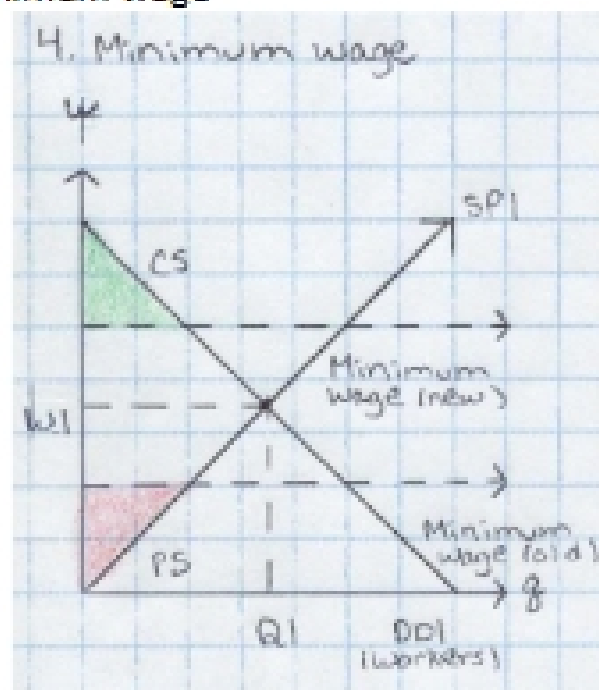 4. Minimum wage
SP1
CS
Minimum
wage (new)
W1
Minimum
wage (old)
PS
q
Q1
DD1
(workers)